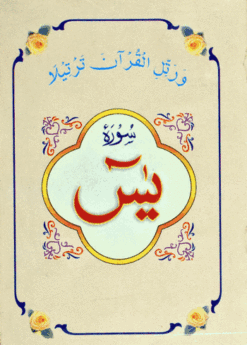 وَرَتِّلِ الْقُرْآنَ تَرْتِيْلًا
سُوْرَةُ
يٰسٓ